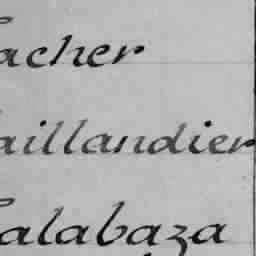 acher
aillandier
alabaza